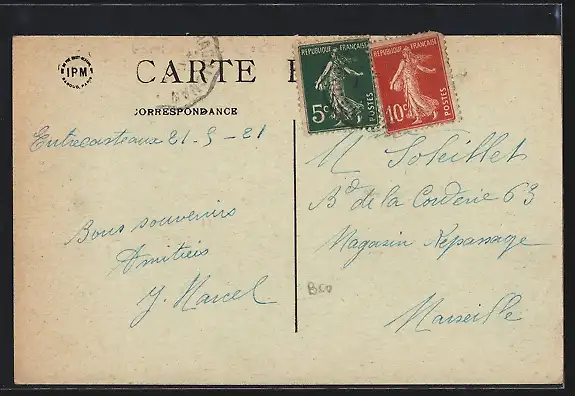 IPM
CARTE
CORRESPONDANCE
REPUBLIQUE FRANÇAISE
5c
POSTES
REPUBLIQUE FRANÇAISE
10c
POSTES
Entrecasteaux 21-9-21
Bons souvenirs
Amitiés
J. Marcel
M Soleillet
Bd de la Corderie 63
Magasin Repassage
Marseille